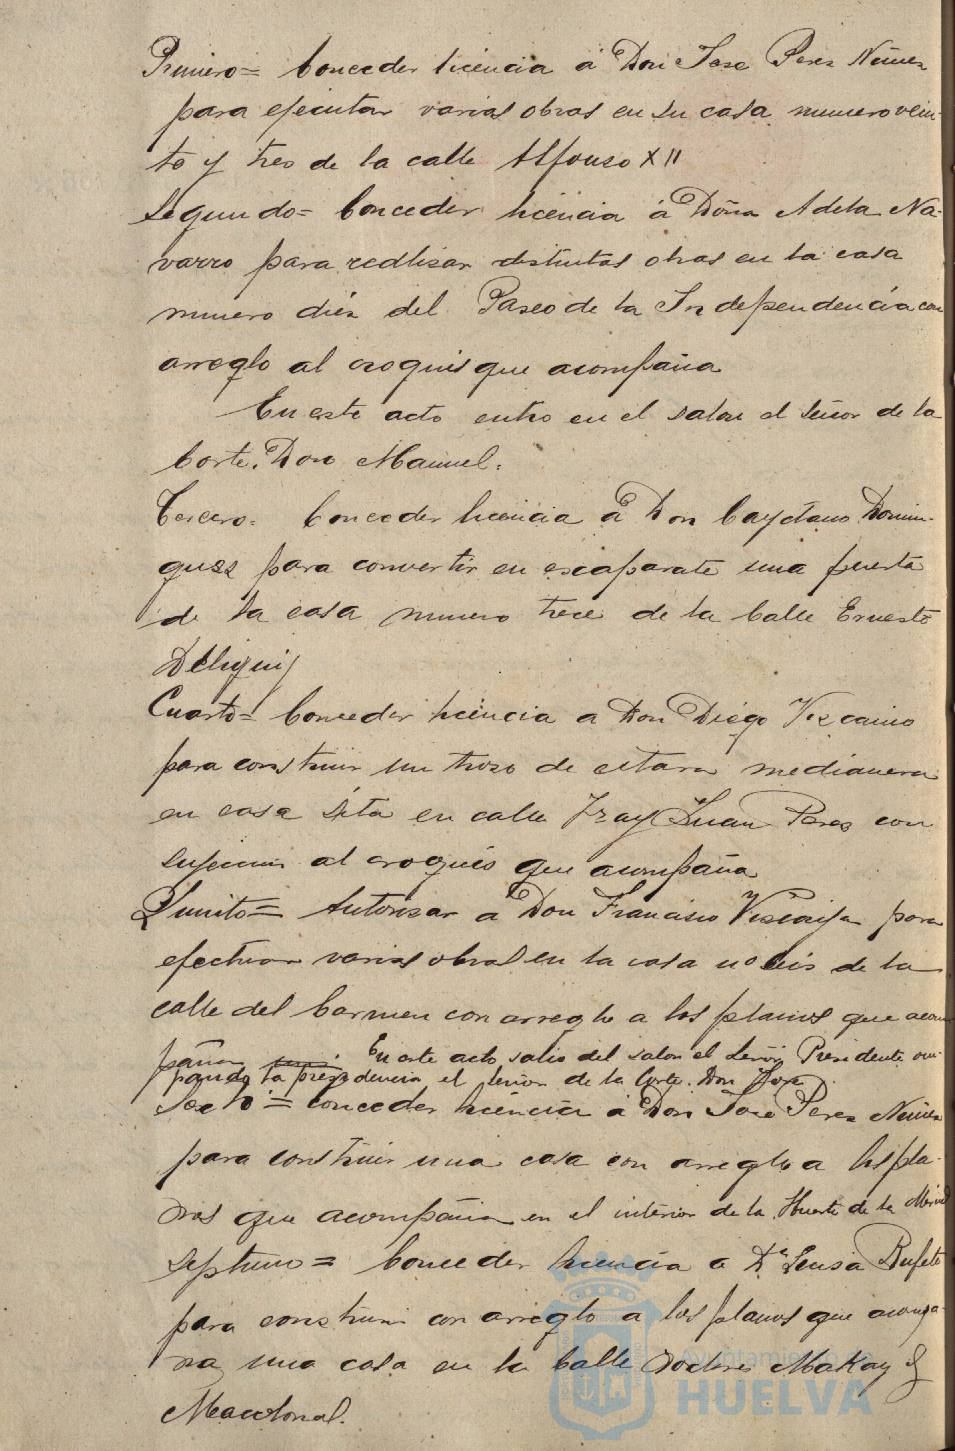 Primero= Conceder licencia á Don Jose Perez Nuñez
para ejecutar varias obras en su casa numero vein-
te y tres de la calle Alfonso XII
Segundo= Conceder licencia á Doña Adela Na-
varro para realisar distintas obras en la casa
numero diés del Paseo de la Independencia con
arreglo al croquis que acompaña
En este acto entro en el salon el Señor de la
Corte. Don Manuel.
Tercero= Conceder licencia á Don Cayetano Domin-
guez para convertir en escaparate una puerta
de la casa numero trece de la Calle Ernesto
Deligni
Cuarto= Conceder licencia a Don Diego Viscaino
para construir un troso de citara medianera
en casa sita en calle Fray Juan Perez con
sujecion al croquis que acompaña
Quinto= Autorisar a Don Francisco
para
efectuar varias obras en la casa nº seis de la
calle del Carmen con arreglo a los planos que acom
pañan En este acto salio del salon el Señor Presidente ocu
pando la presidencia el Señor de la Corte. Don Jose
Sexto= conceder licencia á Don Jose Perez Nuñez
para construir una casa con arreglo a los pla-
nos que acompaña en el interior de la Huerta de la
Septimo= Conceder licencia a Dª Luisa
para construir con arreglo a los planos que acompa-
ña una casa en la Calle Doctores MaKay y
Macdonal.
Ayuntamiento de
HUELVA